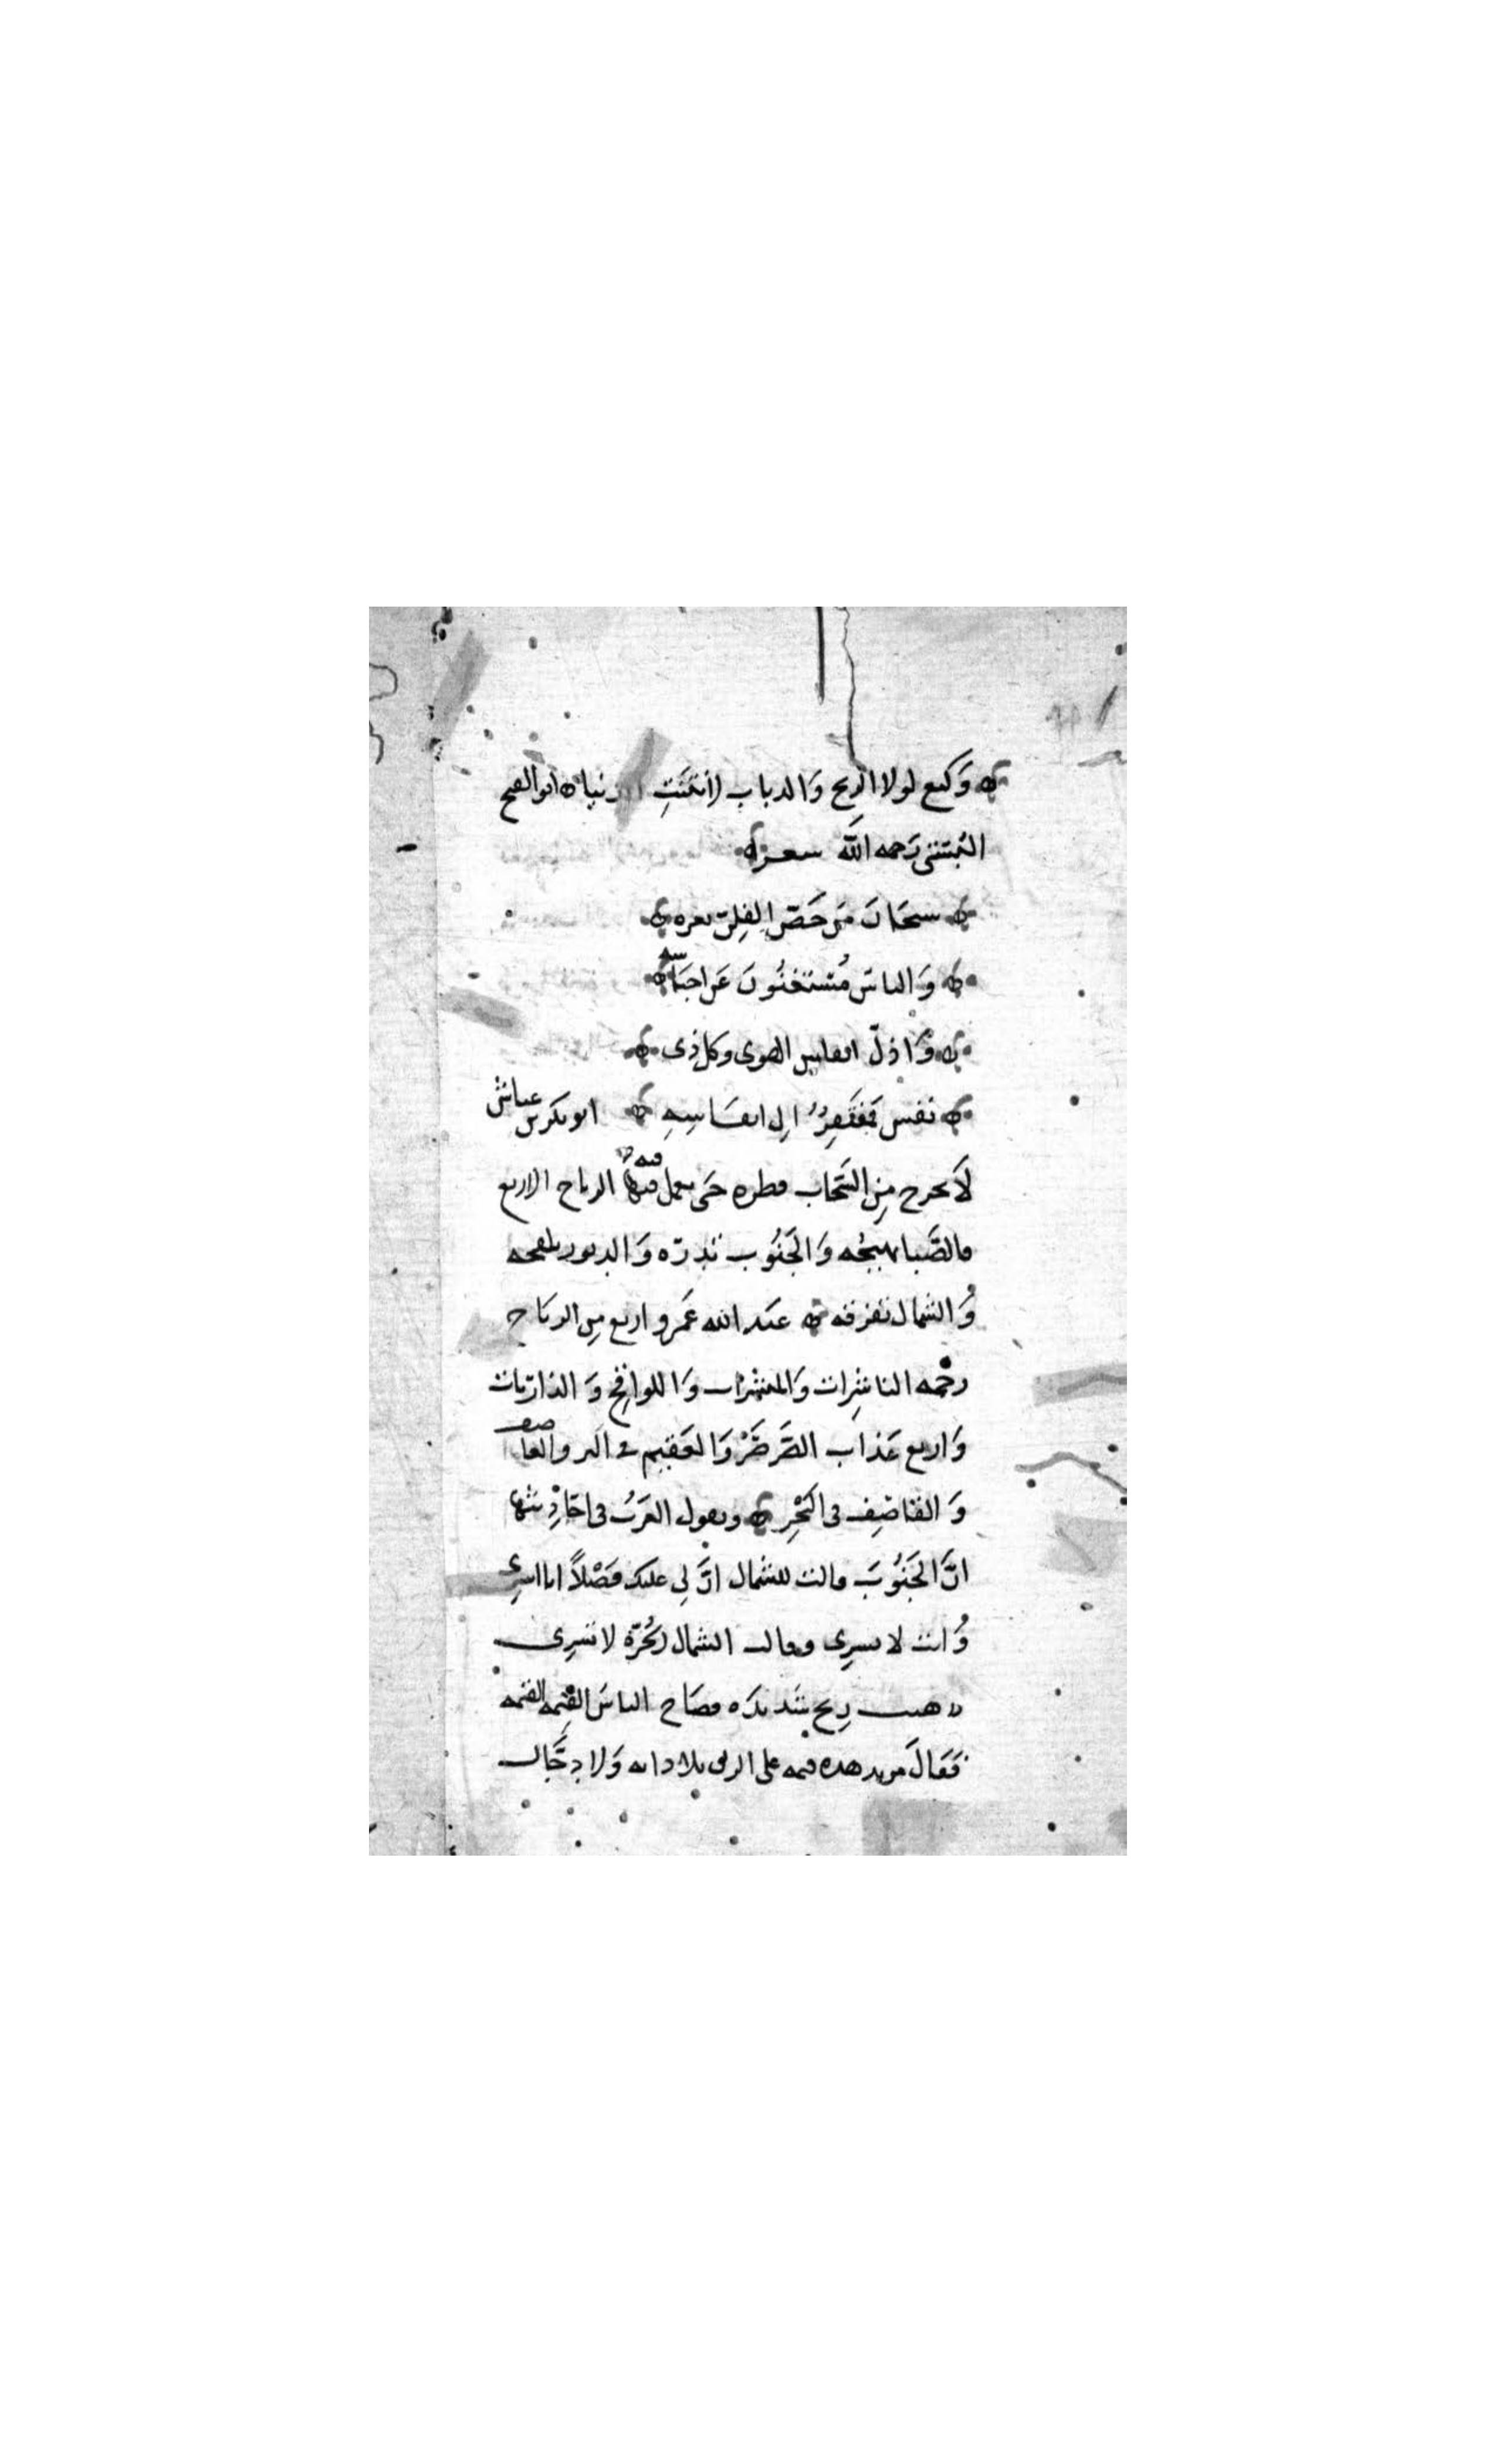 وكيع لولا الريح والذباب لانتنت الدنيا ابو الفتح
البستي رحمه الله شعر
سبحان من خص الفلز بعزه
والناس مستغنون عن اجناسه
واذل انفاس الهوى وكل ذي
نفس فمفتقر الى انفاسه ابو بكر بن عياش
لا يخرج من السحاب قطره حتى يعمل فيه الرياح الاربع
فالصبا تهيجه والجنوب تدره والدبور تلقحه
والشمال تفرقه عبد الله عمرو اربع من الرياح
رحمه الناشرات والمبشرات واللواقح والذاريات
واربع عذاب الصرصر والعقيم في البر والعاصف
والقاصف في البحر ويقول العرب في احاديثها
ان الجنوب قالت للشمال ان لي عليك فضلا انا اسري
وانت لا تسري وقالت الشمال الحرة لا تسري
هبت ريح شديده فصاح الناس القيمه القيمه
فقال مزيد هذه قيمه على الريق بلا دابه ولا دجال